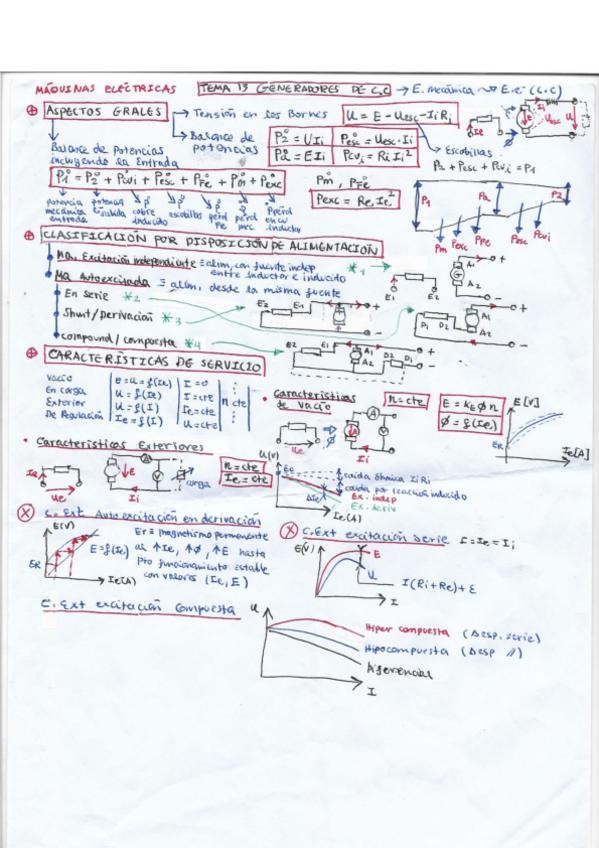 MÁQUINAS ELÉCTRICAS TEMA 13 GENERADORES DE C.C → E. mecánica ⇝ E.e (c.c)
⊕ ASPECTOS GRALES → Tensión en los Bornes U = E - Uesc - IiRi
→ Balance de potencias P2 = UIi Pesc = Uesc·Ii
Pa = EIi Pcui = RiIi²
Escobillas
P2 + Pesc + Pcui = P1
Balance de potencias incluyendo la Entrada
P1 = P2 + Pcui + Pesc + PFe + Pm + Pexc
Pm, PFe
Pexc = Re,Ie²
potencia mecánica entrada
P1 Pa P2
Pm Pexc PFe Pesc Pcui
⊕ CLASIFICACIÓN POR DISPOSICIÓN DE ALIMENTACIÓN
MQ. Excitación independiente ≡ alim, con fuente indep entre inductor e inducido *1
MQ Autoexcitada ≡ alim, desde la misma fuente
En serie *2
Shunt/derivación *3
compound/compuesta *4
⊕ CARACTERÍSTICAS DE SERVICIO
Vacío E=U=f(Ie) I=0
En carga U=f(Ie) I=cte
Exterior U=f(I) Ie=cte
De Regulación Ie=f(I) U=cte
n cte
• Características de vacío n=cte E = kE Ø n
Ø = f(Ie)
E[V]
ER
Ie[A]
• Características Exteriores
Ie
Ue
E
Ii
carga
n=cte
Ie=cte
U(V)
Eo
caída óhmica IiRi
caída por reacción inducido
Ex. indep
Ex. deriv
ⓧ C. Ext Autoexcitación en derivación
E(V)
ER
Ie(A)
Er ≡ magnetismo permanente
E=f(Ie) así, ↑Ie, ↑Ø, ↑E hasta
pto funcionamiento estable
con valores (Ie, E)
ⓧ C.Ext excitación serie I=Ie=Ii
E(V)
E
U
I(Ri+Re)+E
I
C. Ext excitación compuesta
U
Hiper compuesta (Δesp. serie)
Hipocompuesta (Δesp //)
Diferencial
I